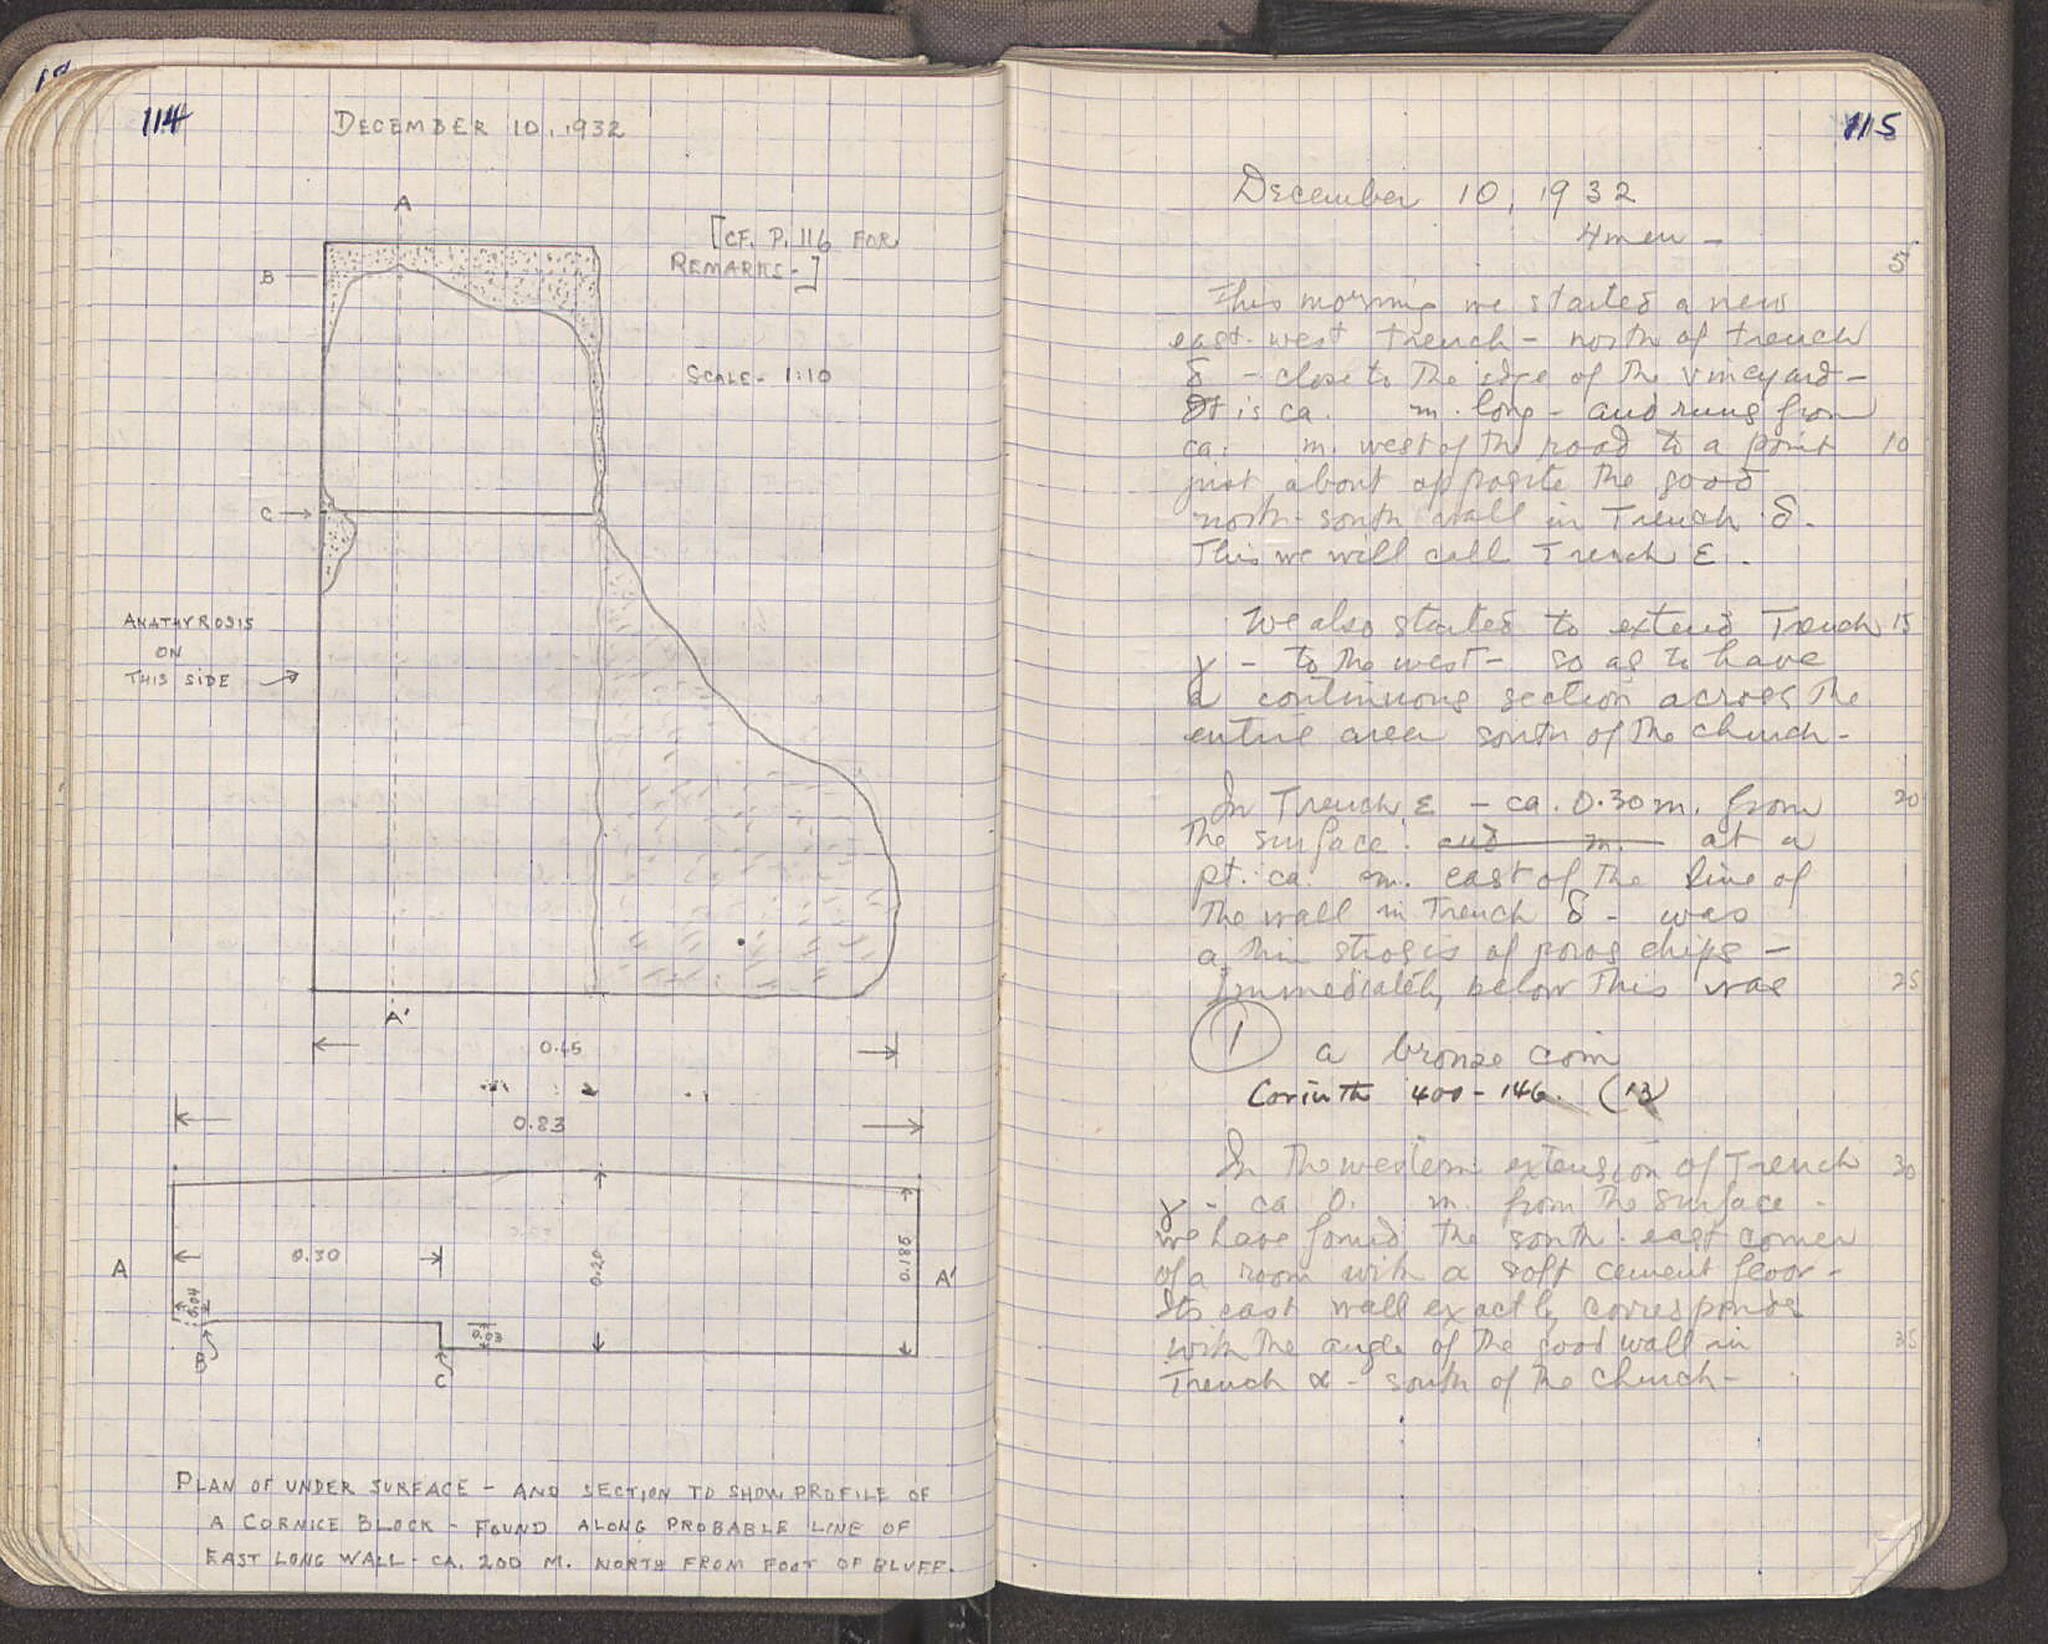 114
DECEMBER 10, 1932
A
[CF. P. 116 FOR
REMARKS-]
B
SCALE- 1:10
C
ANATHYROSIS
ON
THIS SIDE
A'
0.65
0.83
0.30
0.20
0.185
A
A'
0.04
0.03
B
C
PLAN OF UNDER SURFACE - AND SECTION TO SHOW PROFILE OF
A CORNICE BLOCK - FOUND ALONG PROBABLE LINE OF
EAST LONG WALL - CA. 200 M. NORTH FROM FOOT OF BLUFF.
115
December 10, 1932
4 men -
5
This morning we started a new
east-west trench - north of trench
δ - close to the edge of the vineyard -
It is ca. m. long - and runs from
ca. m. west of the road to a point 10
just about opposite the good
north-south wall in Trench δ.
This we will call Trench ε.
We also started to extend Trench 15
γ - to the west - so as to have
a continuous section across the
entire area south of the church -
In Trench ε - ca. 0.30 m. from 20
the surface. and m. at a
pt. ca. m. east of the line of
the wall in Trench δ - was
a thin strosis of poros chips -
Immediately below this was 25
1 a bronze coin
Corinth 400-146. (13)
In the western extension of Trench 30
γ - ca 0. m. from the surface -
we have found the south-east corner
of a room with a soft cement floor -
Its east wall exactly corresponds
with the angle of the good wall in 35
Trench α - south of the church -